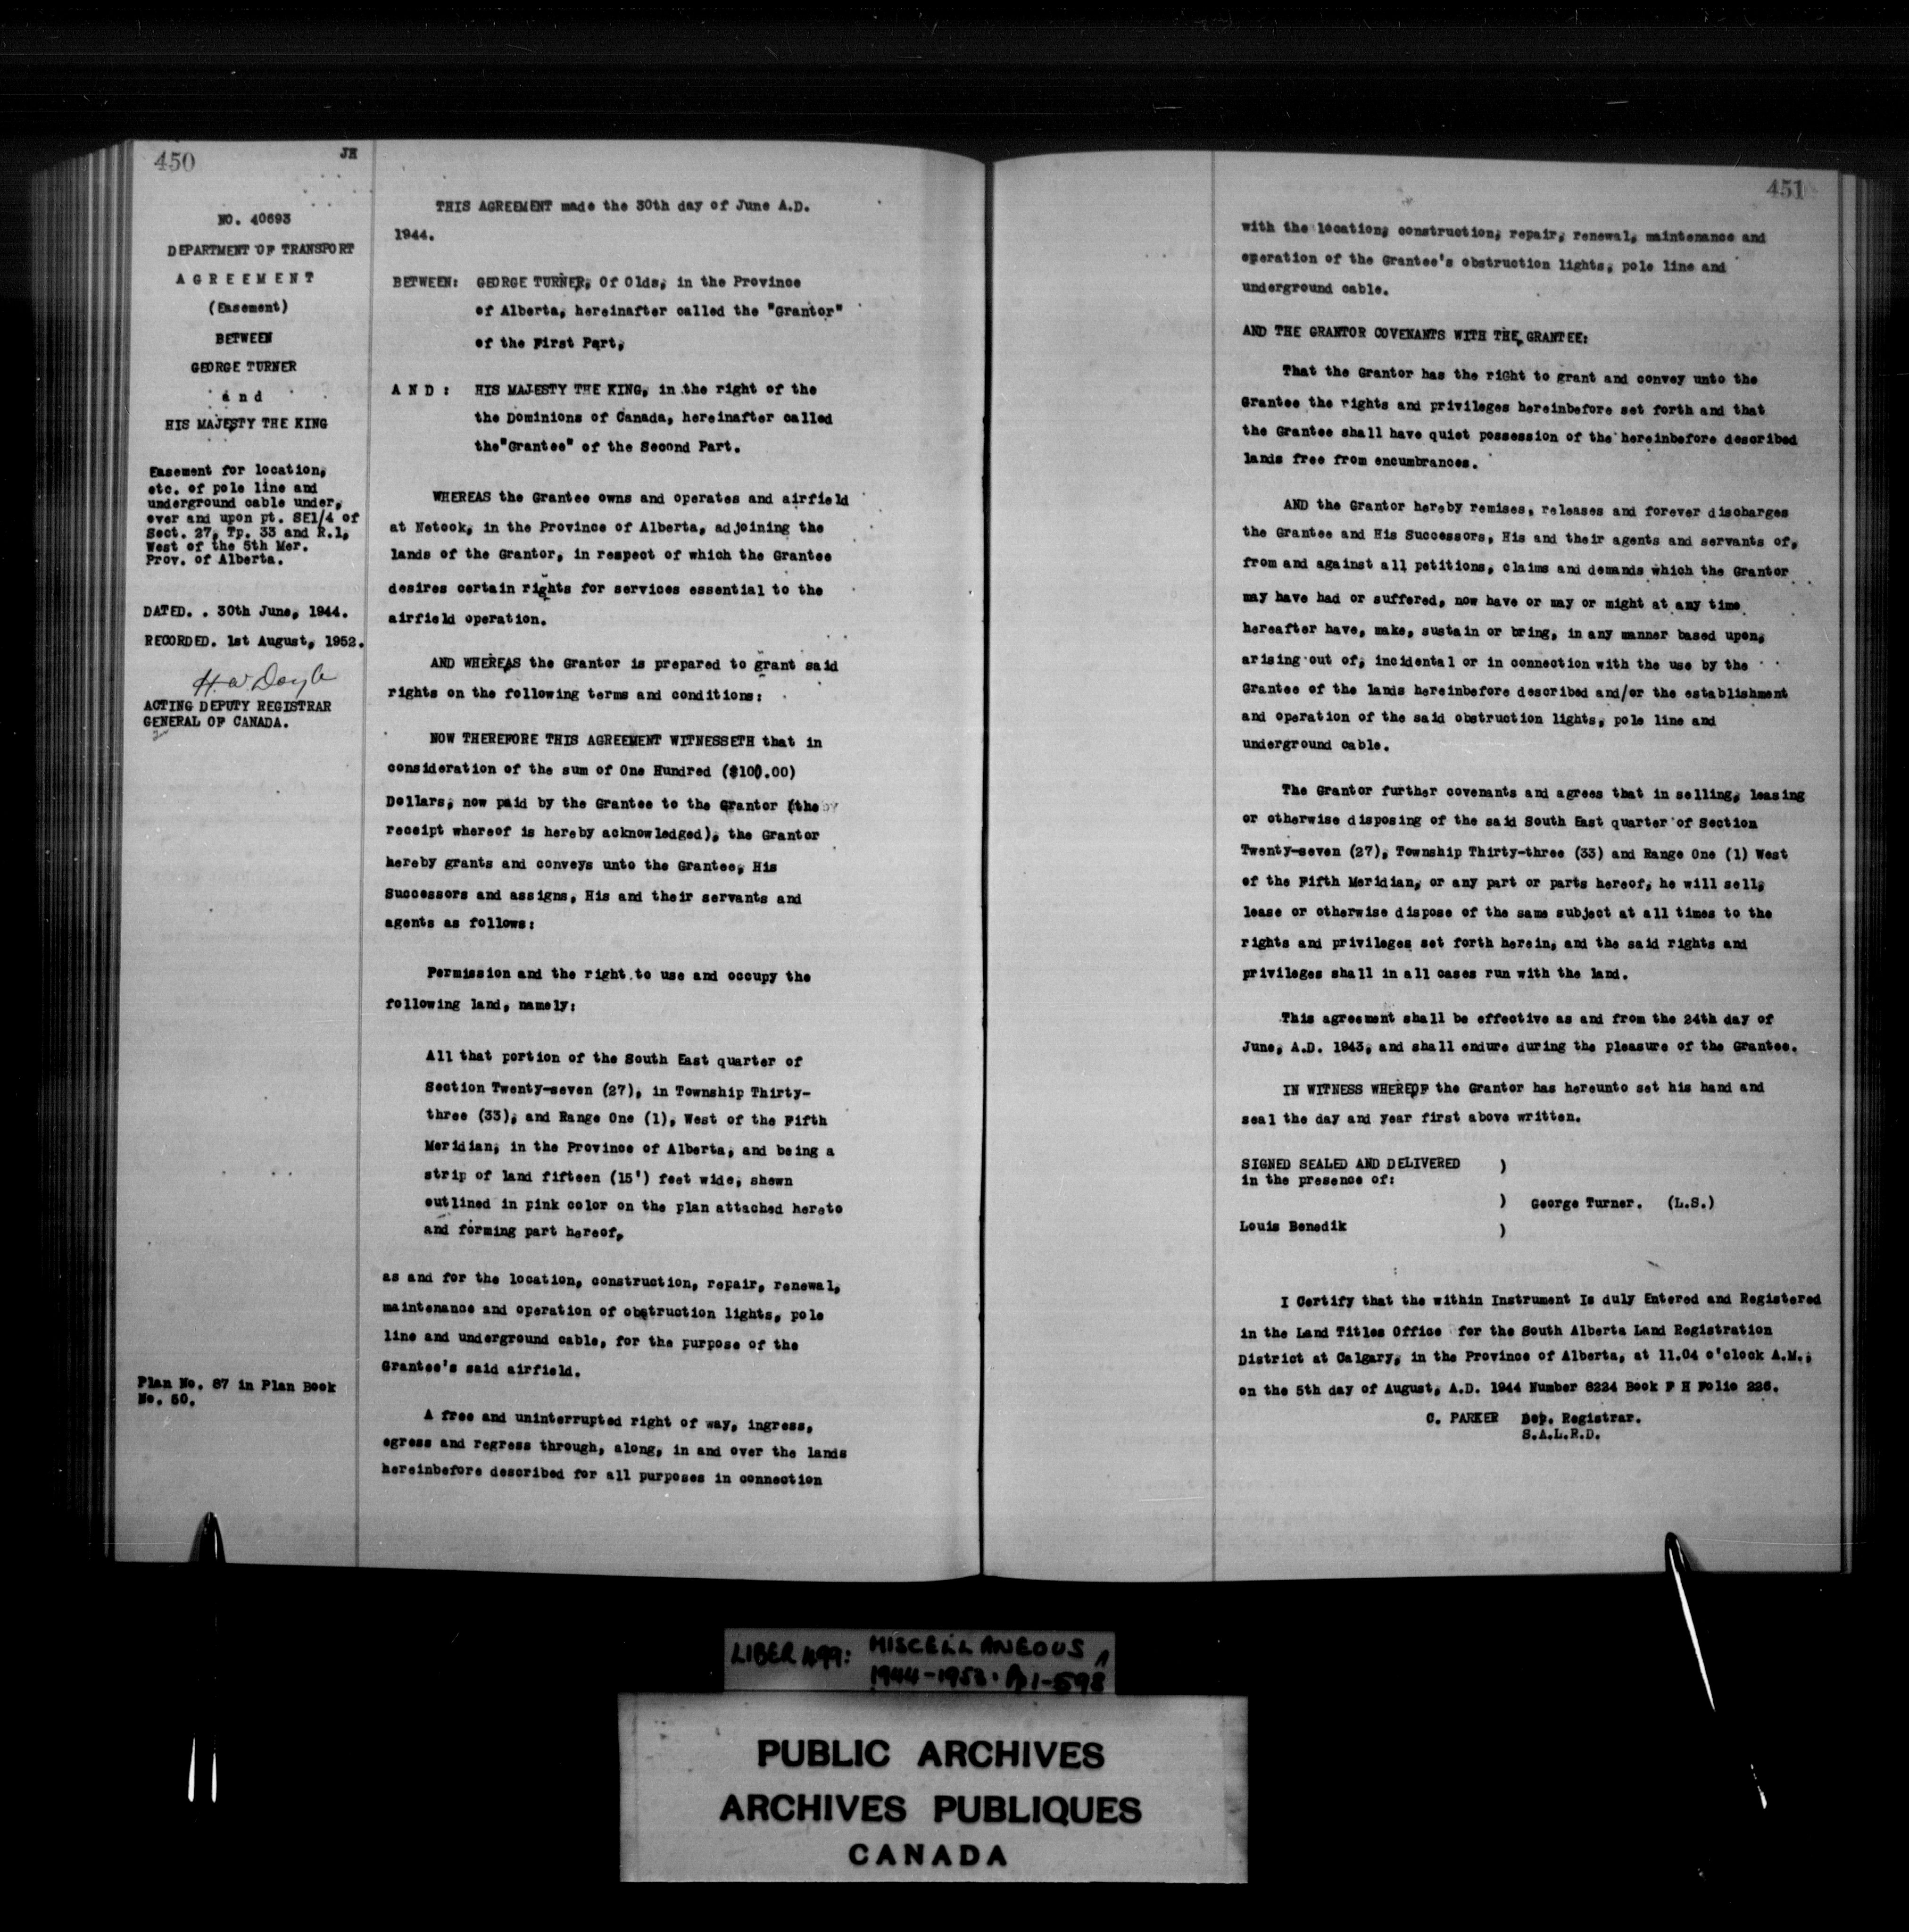 450
JH
NO. 40693
DEPARTMENT OF TRANSPORT
A G R E E M E N T
(Easement)
BETWEEN
GEORGE TURNER
a n d
HIS MAJESTY THE KING
Easement for location,
etc. of pole line and
underground cable under,
over and upon pt. SE1/4 of
Sect. 27, Tp. 33 and R.1,
West of the 5th Mer.
Prov. of Alberta.
DATED. . 30th June, 1944.
RECORDED. 1st August, 1952.
H.W. Doyle
ACTING DEPUTY REGISTRAR
GENERAL OF CANADA.
Plan No. 87 in Plan Book
No. 50.
THIS AGREEMENT made the 30th day of June A.D.
1944.
BETWEEN: GEORGE TURNER, Of Olds, in the Province
of Alberta, hereinafter called the "Grantor"
of the First Part,
A N D : HIS MAJESTY THE KING, in the right of the
the Dominions of Canada, hereinafter called
the"Grantee" of the Second Part.
WHEREAS the Grantee owns and operates and airfield
at Netook, in the Province of Alberta, adjoining the
lands of the Grantor, in respect of which the Grantee
desires certain rights for services essential to the
airfield operation.
AND WHEREAS the Grantor is prepared to grant said
rights on the following terms and conditions:
NOW THEREFORE THIS AGREEMENT WITNESSETH that in
consideration of the sum of One Hundred ($100.00)
Dollars, now paid by the Grantee to the Grantor (the
receipt whereof is hereby acknowledged), the Grantor
hereby grants and conveys unto the Grantee, His
Successors and assigns, His and their servants and
agents as follows:
Permission and the right to use and occupy the
following land, namely:
All that portion of the South East quarter of
Section Twenty-seven (27), in Township Thirty-
three (33), and Range One (1), West of the Fifth
Meridian, in the Province of Alberta, and being a
strip of land fifteen (15') feet wide, shewn
outlined in pink color on the plan attached hereto
and forming part hereof,
as and for the location, construction, repair, renewal,
maintenance and operation of obstruction lights, pole
line and underground cable, for the purpose of the
Grantee's said airfield.
A free and uninterrupted right of way, ingress,
egress and regress through, along, in and over the lands
hereinbefore described for all purposes in connection
451
with the location, construction, repair, renewal, maintenance and
operation of the Grantee's obstruction lights, pole line and
underground cable.
AND THE GRANTOR COVENANTS WITH THE GRANTEE:
That the Grantor has the right to grant and convey unto the
Grantee the rights and privileges hereinbefore set forth and that
the Grantee shall have quiet possession of the hereinbefore described
lands free from encumbrances.
AND the Grantor hereby remises, releases and forever discharges
the Grantee and His Successors, His and their agents and servants of,
from and against all petitions, claims and demands which the Grantor
may have had or suffered, now have or may or might at any time
hereafter have, make, sustain or bring, in any manner based upon,
arising out of, incidental or in connection with the use by the
Grantee of the lands hereinbefore described and/or the establishment
and operation of the said obstruction lights, pole line and
underground cable.
The Grantor further covenants and agrees that in selling, leasing
or otherwise disposing of the said South East quarter of Section
Twenty-seven (27), Township Thirty-three (33) and Range One (1) West
of the Fifth Meridian, or any part or parts hereof, he will sell,
lease or otherwise dispose of the same subject at all times to the
rights and privileges set forth herein, and the said rights and
privileges shall in all cases run with the land.
This agreement shall be effective as and from the 24th day of
June, A.D. 1943, and shall endure during the pleasure of the Grantee.
IN WITNESS WHEREOF the Grantor has hereunto set his hand and
seal the day and year first above written.
SIGNED SEALED AND DELIVERED )
in the presence of:
) George Turner. (L.S.)
Louis Benedik )
I Certify that the within Instrument Is duly Entered and Registered
in the Land Titles Office for the South Alberta Land Registration
District at Calgary, in the Province of Alberta, at 11.04 o'clock A.M.,
on the 5th day of August, A.D. 1944 Number 8224 Book F H Folio 226.
C. PARKER Dep. Registrar.
S.A.L.R.D.
LIBER 499: MISCELLANEOUS
1944-1953. Pp 1-598
PUBLIC ARCHIVES
ARCHIVES PUBLIQUES
CANADA